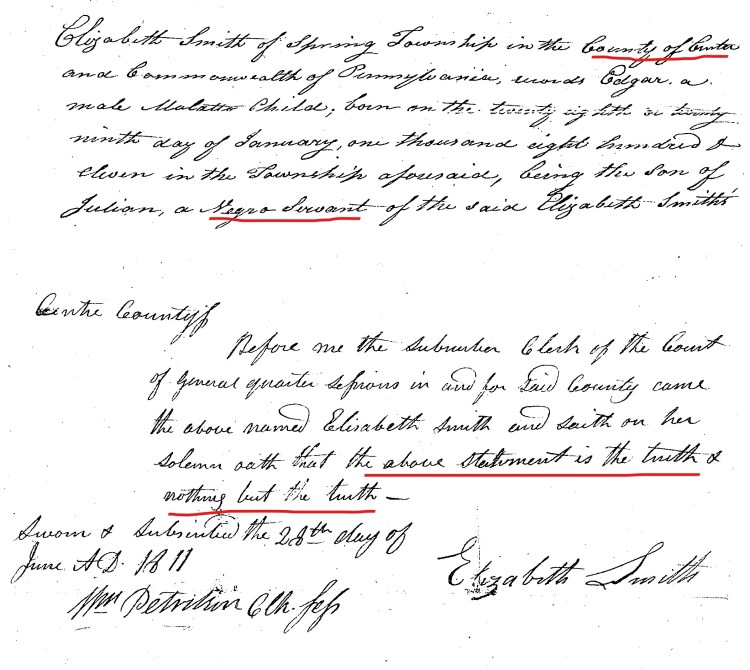 Elizabeth Smith of Spring Township in the County of Centre
and Commonwealth of Pennsylvania, records Edgar. a
male Mulatto Child; born on the twenty eighth or twenty
ninth day of January, one thousand eight hundred &
eleven in the Township aforesaid, being the son of
Julian, a Negro Servant of the said Elizabeth Smith's
Centre County ss
Before me the subscriber Clerk of the Court
of General quarter sessions in and for said County came
the above named Elisabeth Smith and saith on her
solemn oath that the above statement is the truth &
nothing but the truth —
Sworn & Subscribed the 28th day of
June A.D. 1811
Elizabeth Smith
Wm Petrikin Clk. sess